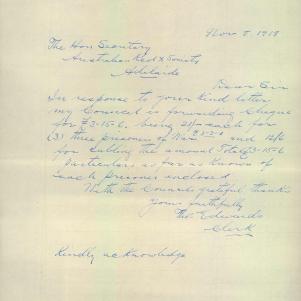 Nov 8 1918
The Hon Secretary
Australian Red X Society
Adelaide
Dear Sir
In response to your kind letter
my Council is forwarding Cheque
for £3-15-6, being 21/- each for
(3) three prisoners of War £3-3-0 and 12/6
for Cabling the amount Total £3-15-6
Particulars as far as known of
each prisoner enclosed
With the Councils grateful thanks
Yours faithfully
Tho. Edwards
Clerk
Kindly acknowledge